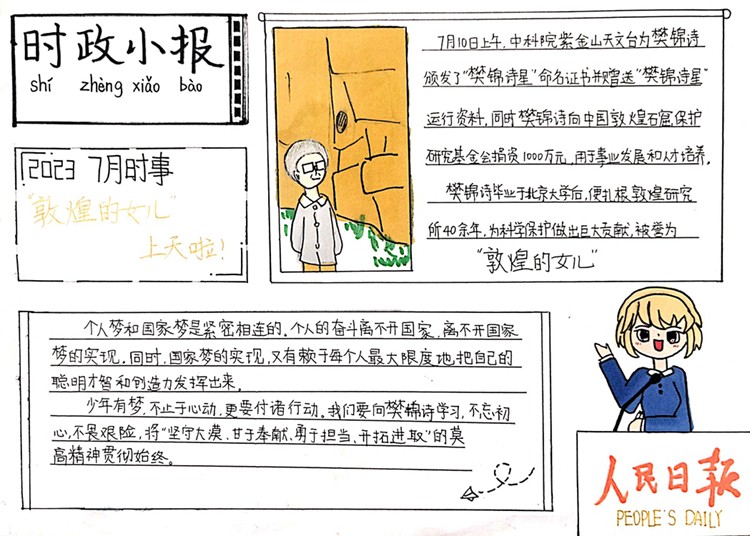 时政小报
shí zhèng xiǎo bào
2023 7月时事
"敦煌的女儿"
上天啦!
7月10日上午,中科院紫金山天文台为樊锦诗
颁发了"樊锦诗星"命名证书并赠送"樊锦诗星"
运行资料,同时樊锦诗向中国敦煌石窟保护
研究基金会捐资1000万元,用于事业发展和人才培养。
樊锦诗毕业于北京大学后,便扎根敦煌研究
所40余年,为科学保护做出巨大贡献,被誉为
"敦煌的女儿"
个人梦和国家梦是紧密相连的。个人的奋斗离不开国家,离不开国家
梦的实现。同时,国家梦的实现,又有赖于每个人最大限度地,把自己的
聪明才智和创造力发挥出来。
少年有梦,不止于心动,更要付诸行动。我们要向樊锦诗学习,不忘初
心,不畏艰险,将"坚守大漠、甘于奉献、勇于担当、开拓进取"的莫
高精神贯彻始终。
人民日報
PEOPLE'S DAILY